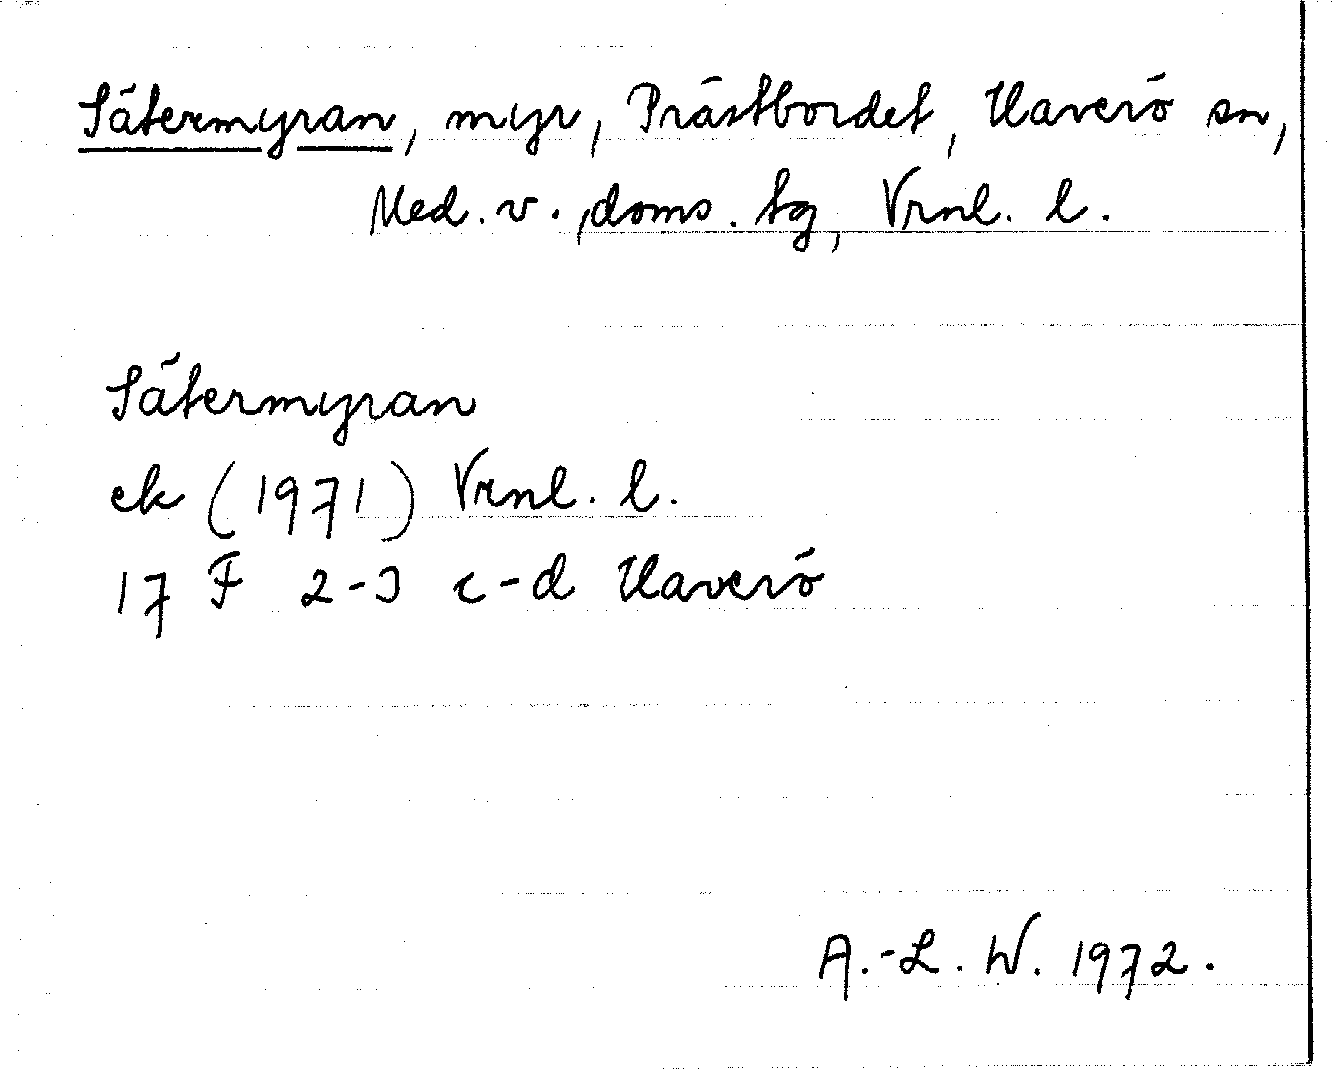 Sätermyran, myr, Prästbordet, Haverö sn,
Med. v., doms. tg, Vrnl. l.
Sätermyran
ek (1971) Vrnl. l.
17 F 2-3 c-d Haverö
A.-L. W. 1972.